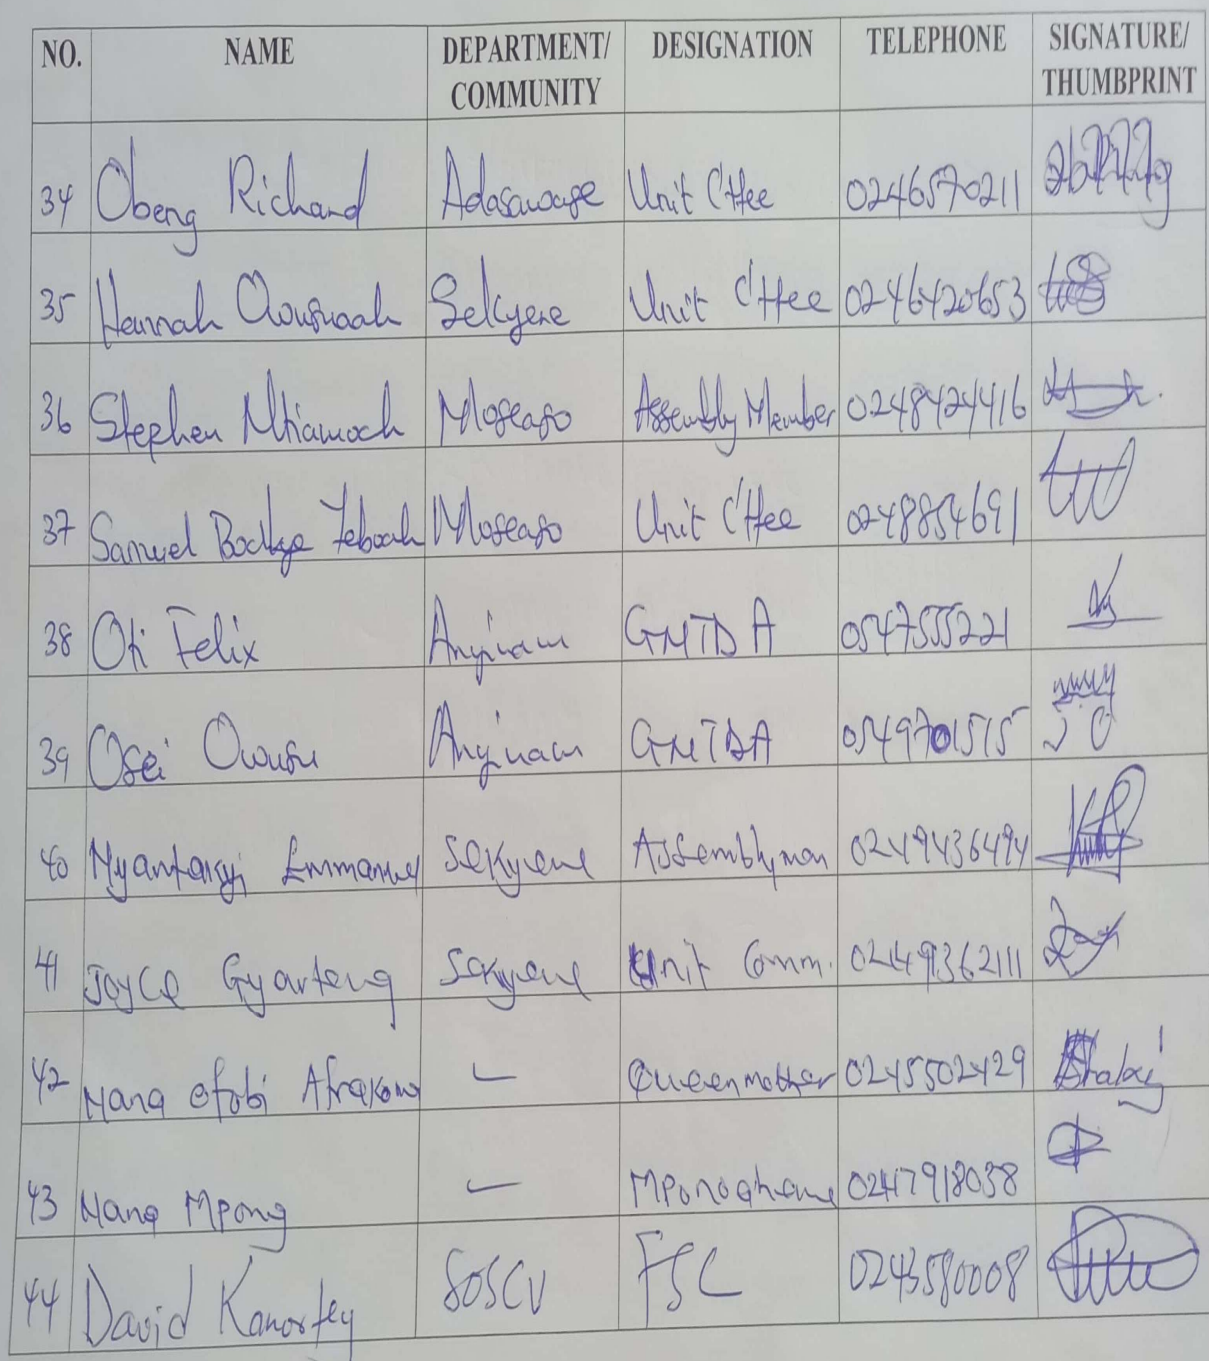 NO. NAME DEPARTMENT/ COMMUNITY DESIGNATION TELEPHONE SIGNATURE/ THUMBPRINT
34 Obeng Richard Adasawase Unit C'ttee 0246570211
35 Hannah Owusuaah Sekyere Unit C'ttee 0246420653
36 Stephen Nkiamoah Moseaso Assembly Member 0248424416
37 Samuel Yeboah Moseaso Unit C'ttee 0248854691
38 Oti Felix Anyinam GNTDA 0547555221
39 Osei Owusu Anyinam GNTDA 0549701515
40 Nyantakyi Emmanuel Sekyere Assemblyman 0249436494
41 Joyce Gyarteng Sekyere Unit Comm.
42 Nana Afrakoma Queenmother 0245502429
43 Nana Mpong 0247918038
44 David Kanortey SOSCV FSC 0243580008